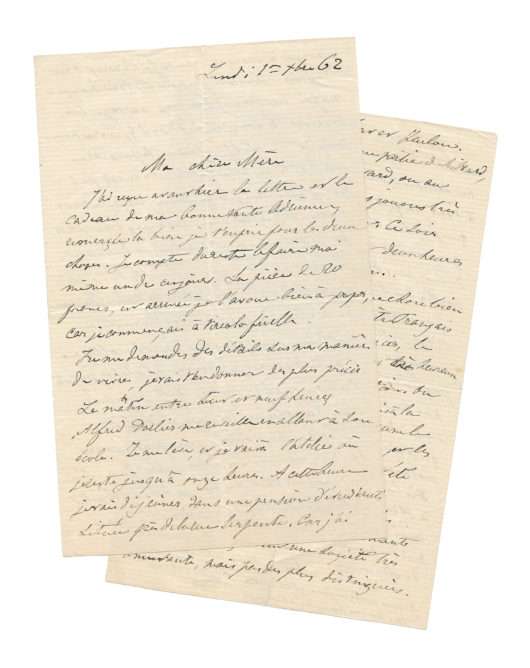 Lundi 1er Xbre 62
Ma chère Mère
J'ai reçu avant hier la lettre et le
cadeau de ma bonne tante Adrienne,
remercie la bien je t'en prie pour les deux
choses. Je compte du reste le faire moi
même un de ces jours. La pièce de 20
francs, est arrivée je l'avoue bien à propos,
car je commençais à
Tu me demandes des détails sur ma manière
de vivre, je vais t'en donner des plus précis
Le matin entre huit et neuf heures
Alfred m'éveille en allant à son
école. Je me lève, et je vais à l'atelier où
je reste jusqu'à onze heures. A cette heure
je vais déjeuner dans une pension d'étudiants
située près de la rue Serpente. Car j'ai
et Toulon.
ou au
jouons très
Ce soir
deux heures
bien
Français
le
très heureux
la
et les
été
une société très
amusante, mais pas des plus distinguées.